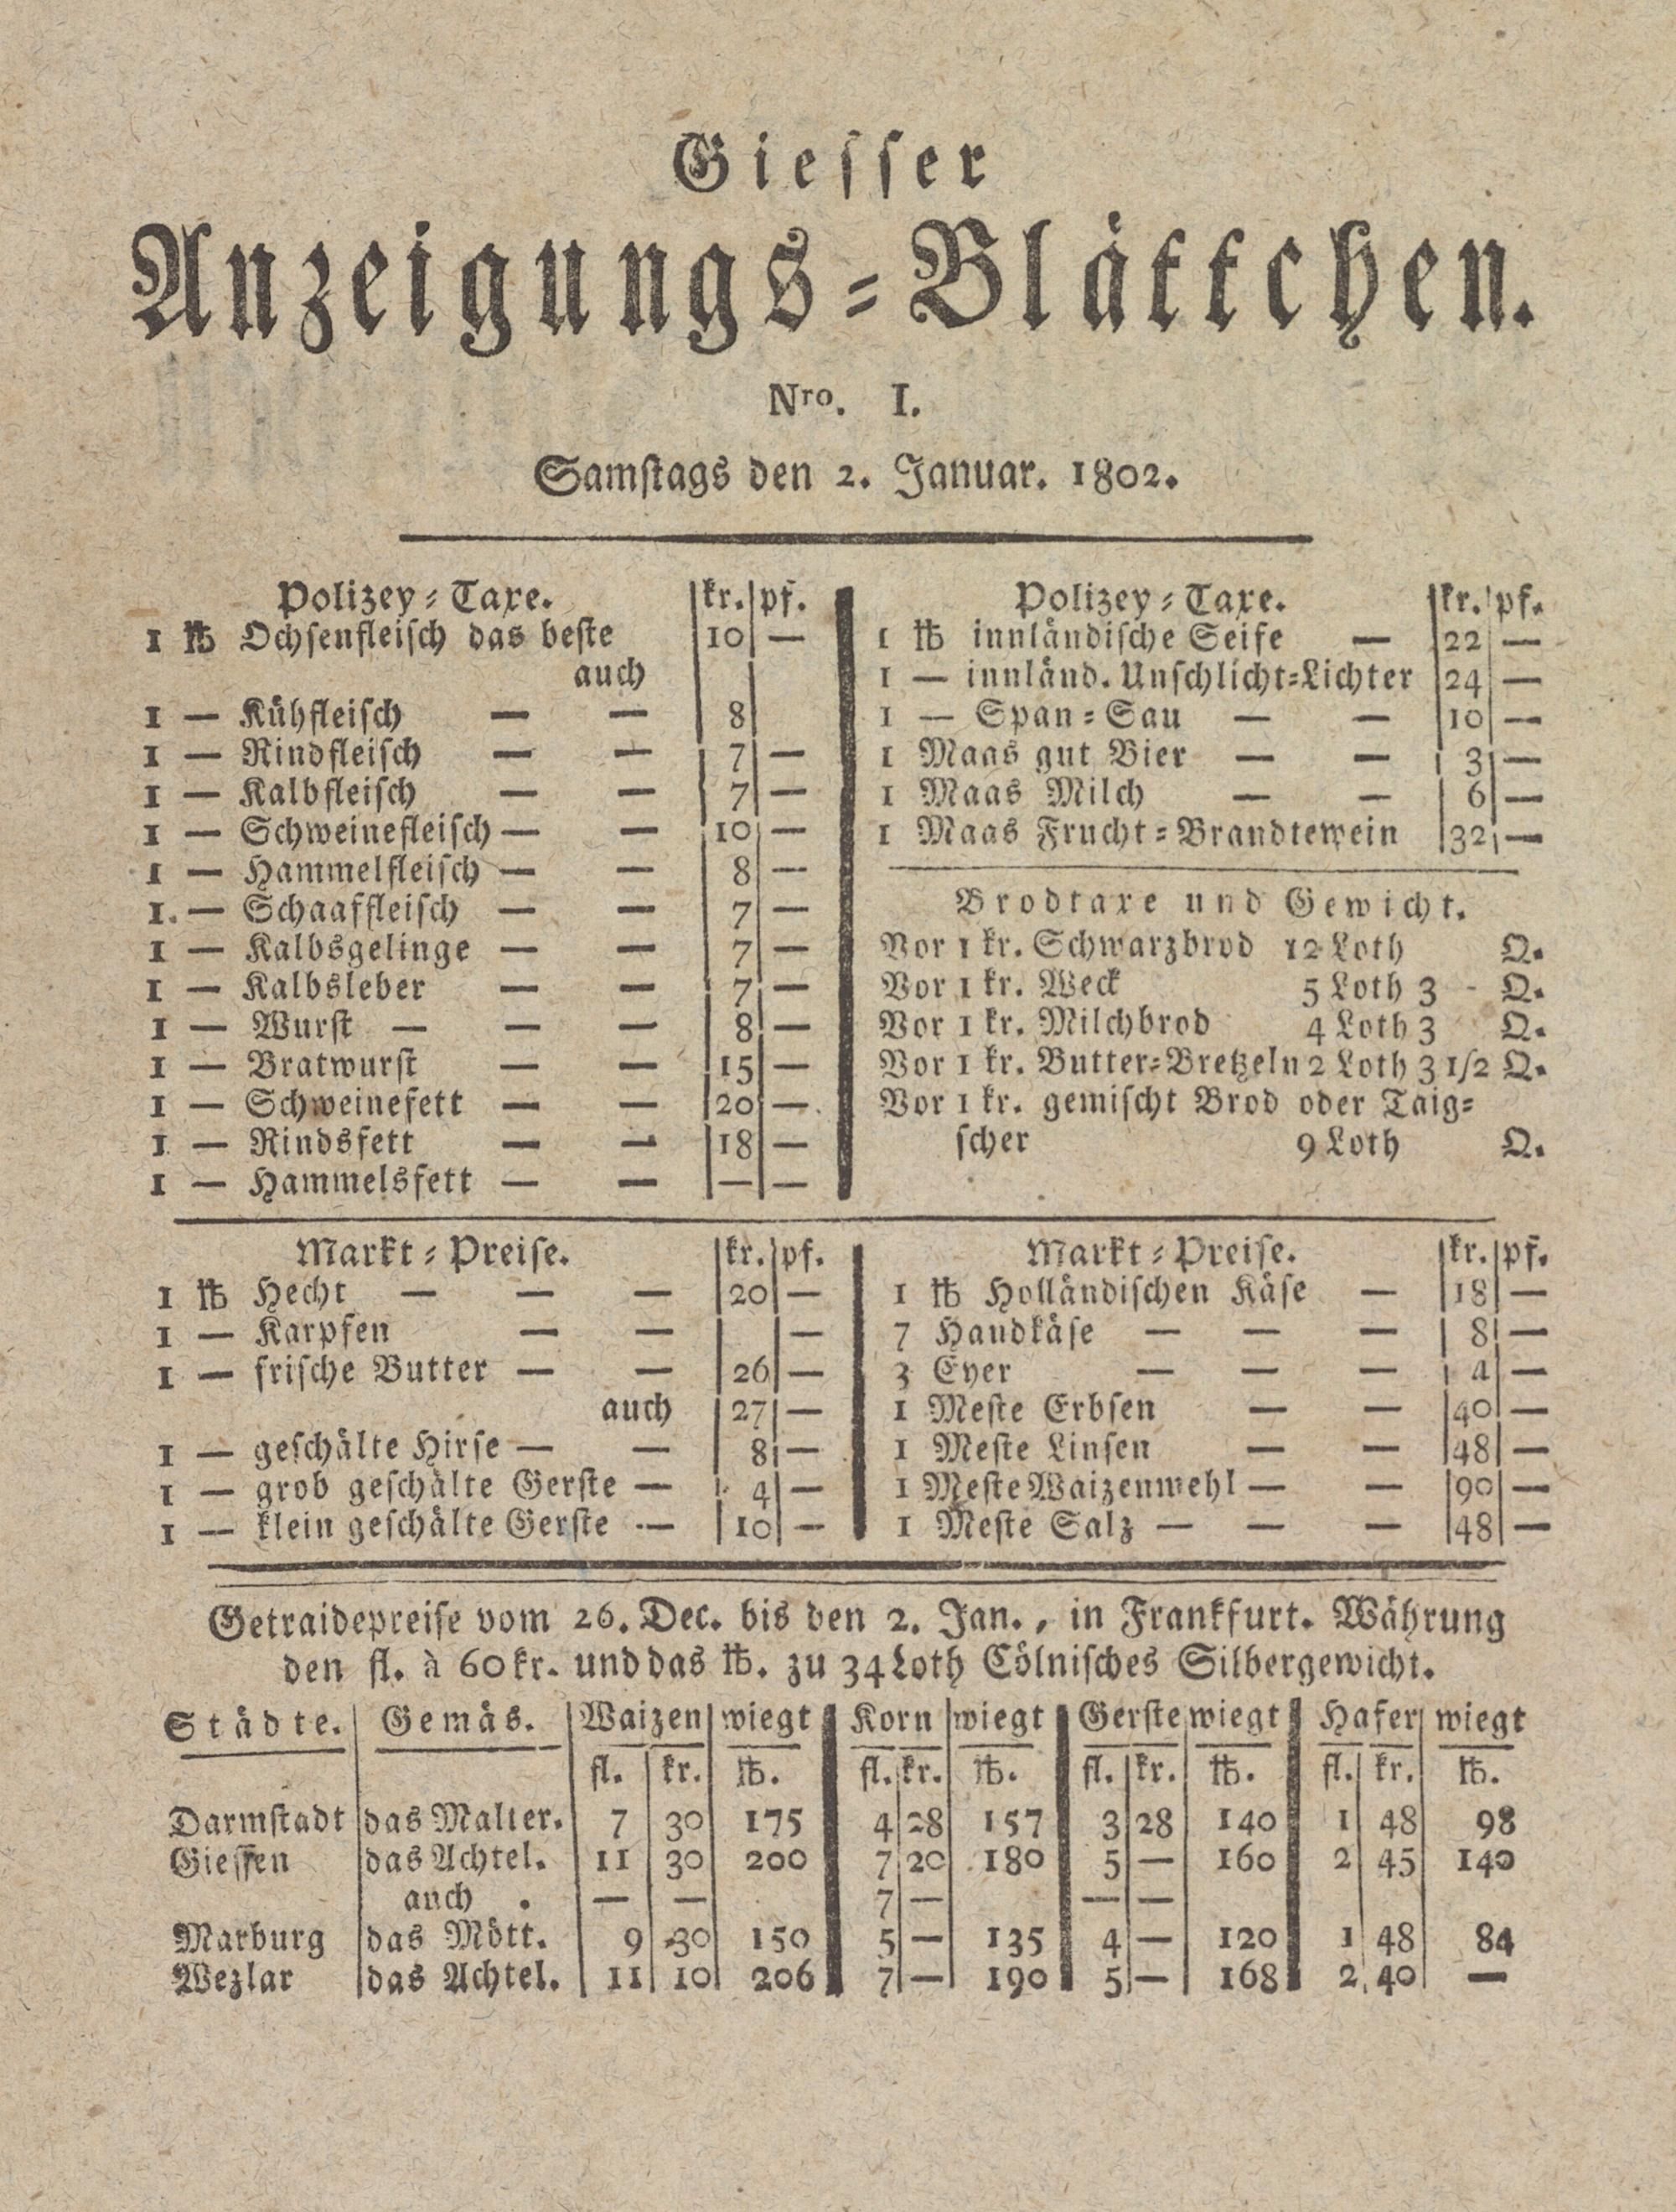 Giesser
Anzeigungs-Blättchen.
Nro. I.
Samstags den 2. Januar. 1802.
Polizey-Taxe. kr. pf.
1 ℔ Ochsenfleisch das beste 10 —
auch
1 — Kühfleisch — — 8
1 — Rindfleisch — — 7 —
1 — Kalbfleisch — — 7 —
1 — Schweinefleisch — — 10 —
1 — Hammelfleisch — — 8 —
1. — Schaaffleisch — — 7 —
1 — Kalbsgelinge — — 7 —
1 — Kalbsleber — — 7 —
1 — Wurst — — — 8 —
1 — Bratwurst — — 15 —
1 — Schweinefett — — 20 —
1 — Rindsfett — — 18 —
1 — Hammelsfett — — — —
Polizey-Taxe. kr. pf.
1 ℔ innländische Seife — 22 —
1 — innländ. Unschlicht-Lichter 24 —
1 — Span-Sau — — 10 —
1 Maas gut Bier — — 3 —
1 Maas Milch — — 6 —
1 Maas Frucht-Brandtewein 32 —
Brodtaxe und Gewicht.
Vor 1 kr. Schwarzbrod 12 Loth Q.
Vor 1 kr. Weck 5 Loth 3 - Q.
Vor 1 kr. Milchbrod 4 Loth 3 Q.
Vor 1 kr. Butter-Bretzeln 2 Loth 3 1/2 Q.
Vor 1 kr. gemischt Brod oder Taig-
scher 9 Loth Q.
Markt-Preise. kr. pf.
1 ℔ Hecht — — — 20 —
1 — Karpfen — — —
1 — frische Butter — — 26 —
auch 27 —
1 — geschälte Hirse — — 8 —
1 — grob geschälte Gerste — 4 —
1 — klein geschälte Gerste — 10 —
Markt-Preise. kr. pf.
1 ℔ Holländischen Käse — 18 —
7 Handkäse — — — 8 —
3 Eyer — — — 4 —
1 Meste Erbsen — — 40 —
1 Meste Linsen — — 48 —
1 Meste Waizenmehl — — 90 —
1 Meste Salz — — — 48 —
Getraidepreise vom 26. Dec. bis den 2. Jan., in Frankfurt. Währung
den fl. à 60 kr. und das ℔. zu 34 Loth Cölnisches Silbergewicht.
Städte. Gemäs. Waizen wiegt Korn wiegt Gerste wiegt Hafer wiegt
fl. kr. ℔. fl. kr. ℔. fl. kr. ℔. fl. kr. ℔.
Darmstadt das Malter. 7 30 175 4 28 157 3 28 140 1 48 98
Giessen das Achtel. 11 30 200 7 20 180 5 — 160 2 45 140
auch . — — 7 — — —
Marburg das Mött. 9 30 150 5 — 135 4 — 120 1 48 84
Wezlar das Achtel. 11 10 206 7 — 190 5 — 168 2 40 —